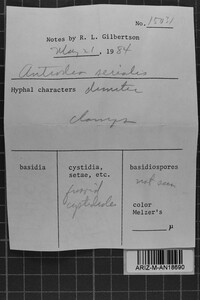 No. 15071
Notes by R. L. Gilbertson
May 21, 1984
Antrodia serialis
Hyphal characters dimitic
clamps
basidia
cystidia, setae, etc.
fusoid cystidiole
basidiospores
not seen
color
Melzer's
μ
ARIZ-M-AN18690